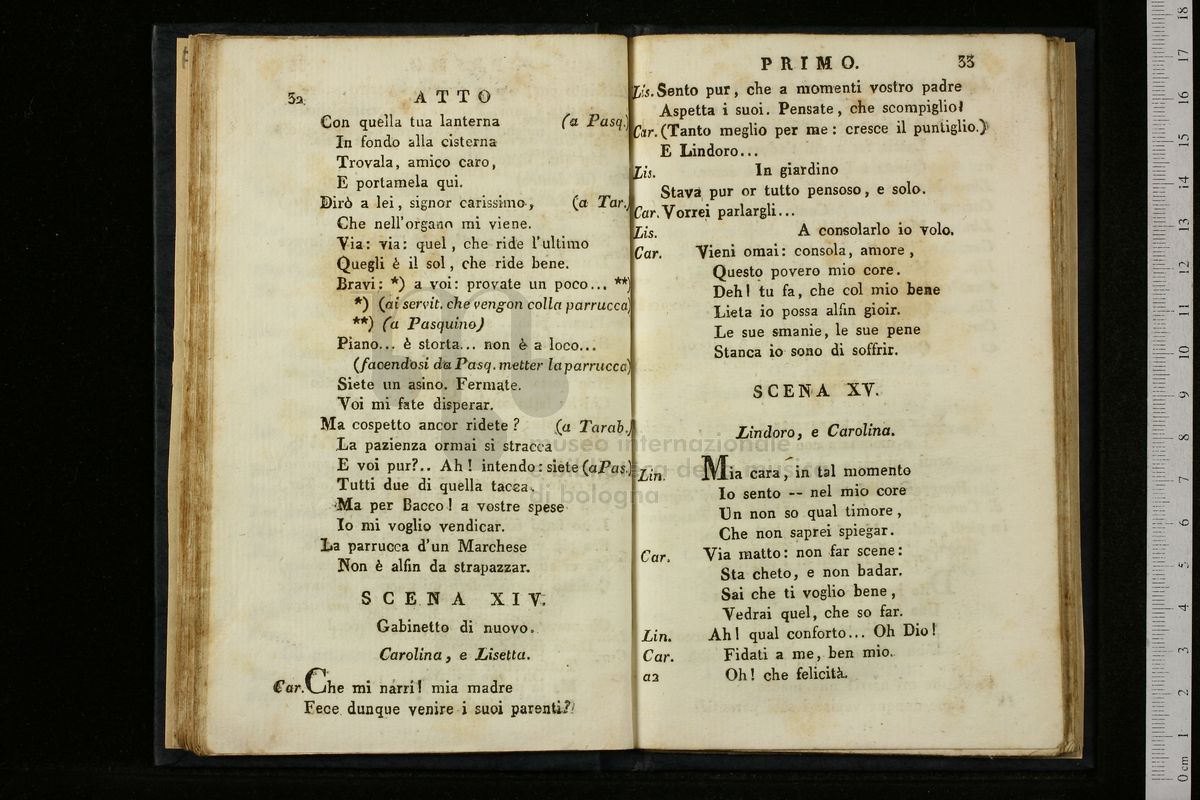 32 ATTO
Con quella tua lanterna (a Pasq.)
In fondo alla cisterna
Trovala, amico caro,
E portamela qui.
Dirò a lei, signor carissimo, (a Tar.)
Che nell'organo mi viene.
Via: via: quel, che ride l'ultimo
Quegli è il sol, che ride bene.
Bravi: *) a voi: provate un poco... **)
*) (ai servit. che vengon colla parrucca)
**) (a Pasquino)
Piano... è storta... non è a loco...
(facendosi da Pasq. metter la parrucca)
Siete un asino. Fermate.
Voi mi fate disperar.
Ma cospetto ancor ridete? (a Tarab.)
La pazienza ormai si stracca
E voi pur?.. Ah! intendo: siete (a Pas.)
Tutti due di quella tacca.
Ma per Bacco! a vostre spese
Io mi voglio vendicar.
La parrucca d'un Marchese
Non è alfin da strapazzar.
SCENA XIV.
Gabinetto di nuovo.
Carolina, e Lisetta.
Car. Che mi narri! mia madre
Fece dunque venire i suoi parenti?
PRIMO. 33
Lis. Sento pur, che a momenti vostro padre
Aspetta i suoi. Pensate, che scompiglio!
Car. (Tanto meglio per me: cresce il puntiglio.)
E Lindoro...
Lis. In giardino
Stava pur or tutto pensoso, e solo.
Car. Vorrei parlargli...
Lis. A consolarlo io volo.
Car. Vieni omai: consola, amore,
Questo povero mio core.
Deh! tu fa, che col mio bene
Lieta io possa alfin gioir.
Le sue smanie, le sue pene
Stanca io sono di soffrir.
SCENA XV.
Lindoro, e Carolina.
Lin. Mia cara, in tal momento
Io sento -- nel mio core
Un non so qual timore,
Che non saprei spiegar.
Car. Via matto: non far scene:
Sta cheto, e non badar.
Sai che ti voglio bene,
Vedrai quel, che so far.
Lin. Ah! qual conforto... Oh Dio!
Car. Fidati a me, ben mio.
a2 Oh! che felicità.
museo internazionale
e biblioteca della musica
di bologna
0 cm 1 2 3 4 5 6 7 8 9 10 11 12 13 14 15 16 17 18